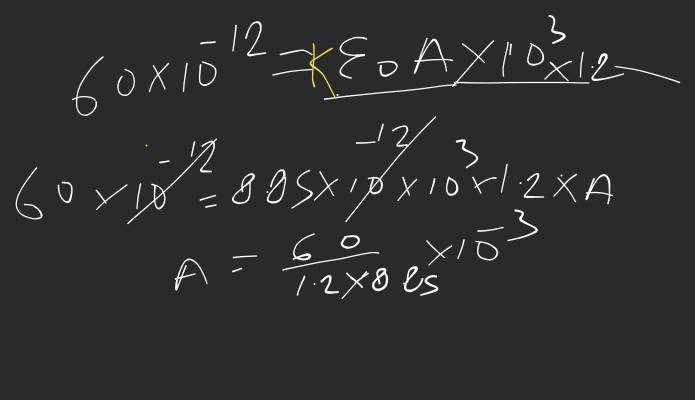 60×10⁻¹² = K ε₀ A × 10³ × 1.2
60 × 10⁻¹² = 885 × 10⁻¹² × 10³ × 1.2 × A
A = 60 / 1.2 × 885 × 10⁻³